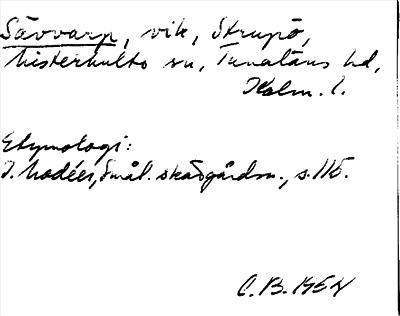 Sävvarp, vik, Strupö,
Misterhults sn, Tunaläns hd,
Kalm. l.
Etymologi:
I. Modéer, Smål. skärgårdsn., s. 115.
C. B. 1951